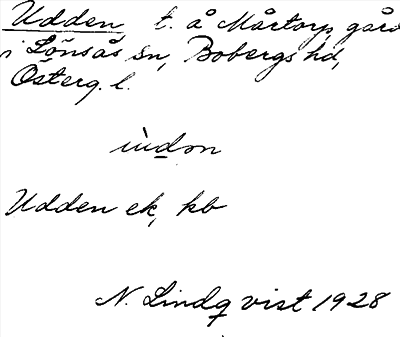 Udden t. å Mårtorp, gård
i Lönsås sn, Bobergs hd,
Österg. l.
ùdon
Udden ek, kb
N. Lindqvist 1928